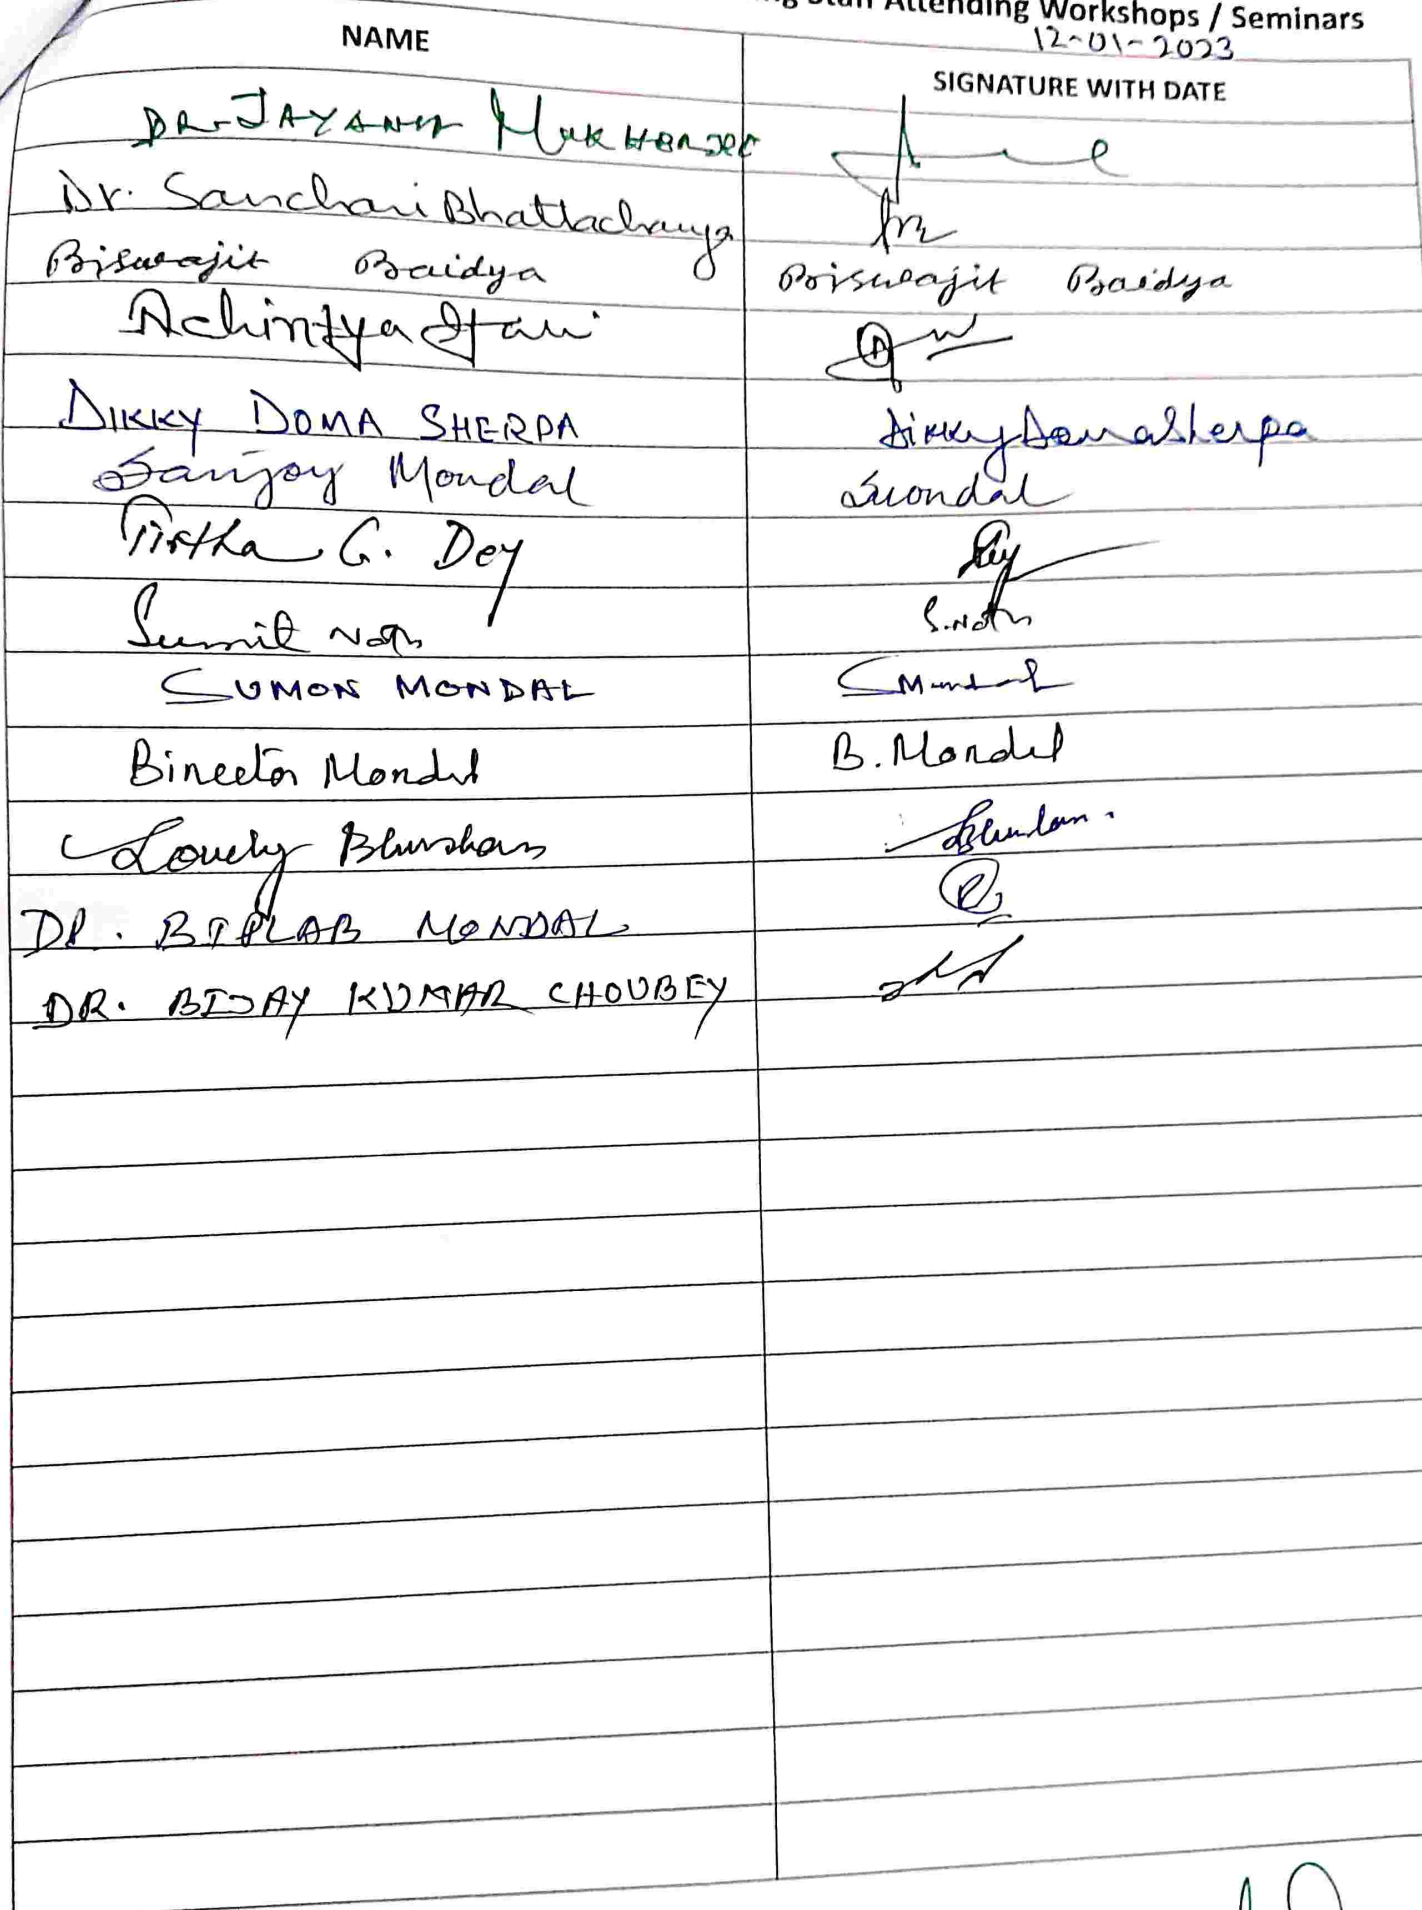 Staff Attending Workshops / Seminars
12-01-2023
NAME SIGNATURE WITH DATE
DR. JAYANTA MUKHERJEE
Dr. Sanchari Bhattacharya
Biswajit Baidya Biswajit Baidya
Achintya
DIKKY DOMA SHERPA Dikky Doma Sherpa
Sanjoy Mondal SMondal
Tirtha G. Dey Dey
Sumit Nath S.Nath
SUMON MONDAL SMondal
Bineeta Mondal B. Mondal
Lovely Bhushan
DR. BIPLAB MONDAL
DR. BIJAY KUMAR CHOUBEY